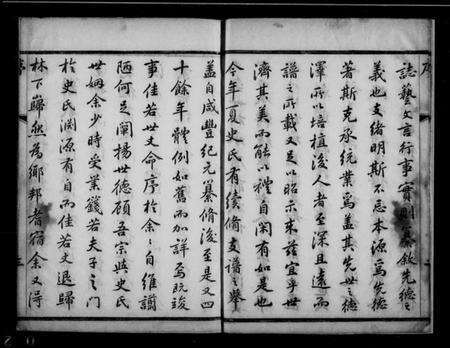 誌藝文言行事實則纂敘先德之
義也支緒明斯不忘本源為先德
著斯克承統業為蓋其先世之德
澤所以培植後人者至深且遠而
譜之所載又足以昭示來茲宜乎世
濟其美而能以禮自閑有如是也
今年夏史氏有續脩支譜之舉
蓋自咸豐紀元纂脩後至是又四
十餘年體例如舊而加詳焉既竣
事佳若世丈命序於余余自維譾
陋何足闡揚世德顧吾宗與史氏
世姻余少時受業錢若夫子之門
於史氏淵源有自而佳若丈退歸
林下巋然為鄉邦耆宿余又得
序
三